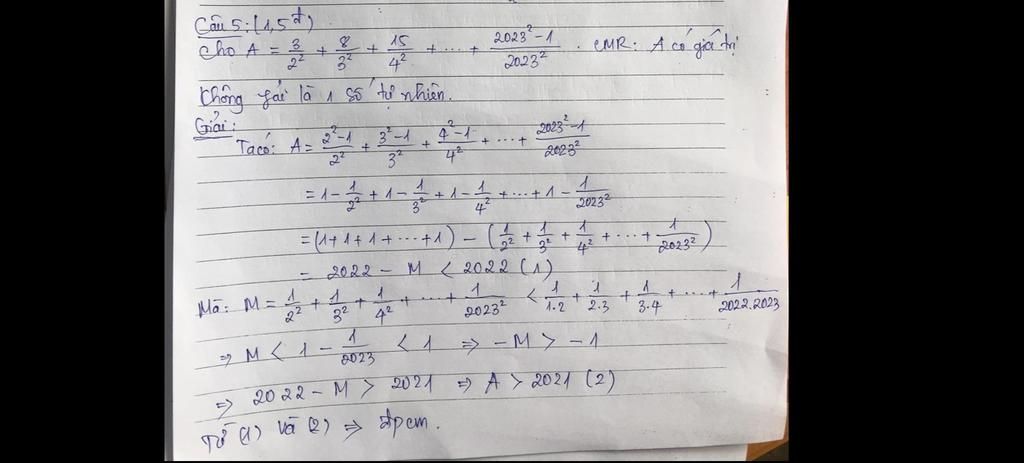 Câu 5: (1,5đ)
Cho A = 3/2² + 8/3² + 15/4² + ... + (2023²-1)/2023² . CMR: A có giá trị
không phải là 1 số tự nhiên.
Giải:
Ta có: A = (2²-1)/2² + (3²-1)/3² + (4²-1)/4² + ... + (2023²-1)/2023²
= 1 - 1/2² + 1 - 1/3² + 1 - 1/4² + ... + 1 - 1/2023²
= (1+1+1+ ... +1) - (1/2² + 1/3² + 1/4² + ... + 1/2023²)
= 2022 - M < 2022 (1)
Mà: M = 1/2² + 1/3² + 1/4² + ... + 1/2023² < 1/1.2 + 1/2.3 + 1/3.4 + ... + 1/2022.2023
⇒ M < 1 - 1/2023 < 1 ⇒ -M > -1
⇒ 2022 - M > 2021 ⇒ A > 2021 (2)
Từ (1) và (2) ⇒ đpcm.